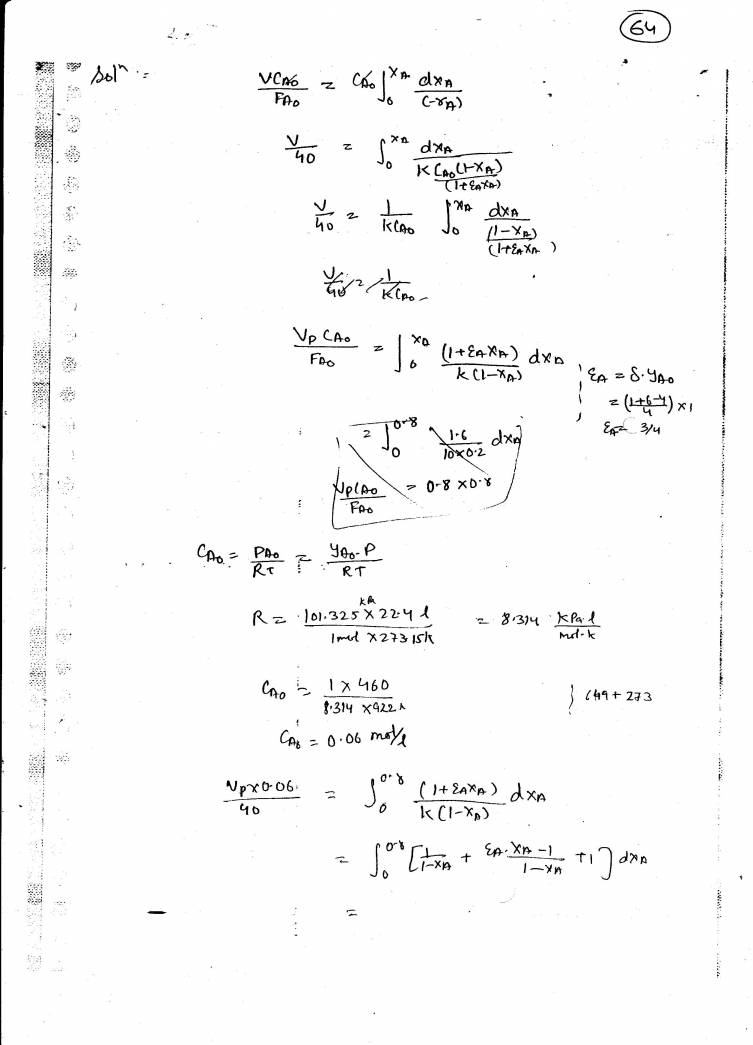 64
Solⁿ :-
VC_A0 / F_A0 = C_A0 ∫₀^X_A dX_A / (-r_A)
V / 40 = ∫₀^X_A dX_A / (K C_A0 (1-X_A) / (1+ε_A X_A))
V / 40 = 1 / KC_A0 ∫₀^X_A dX_A / ((1-X_A) / (1+ε_A X_A))
V / 40 = 1 / KC_A0
V_P C_A0 / F_A0 = ∫₀^X_A (1+ε_A X_A) / k(1-X_A) dX_A
ε_A = δ·y_A0
= (1+6-4 / 4) × 1
ε_A = 3/4
= ∫₀^0.8 1.6 / 10×0.2 dX_A
V_P C_A0 / F_A0 = 0.8 × 0.8
C_A0 = P_A0 / RT = y_A0·P / RT
R = 101.325 kPa × 22.4 l / 1 mol × 273.15k = 8.314 kPa·l / mol·k
C_A0 = 1 × 460 / 8.314 × 922 k } 649 + 273
C_A0 = 0.06 mol/l
V_P × 0.06 / 40 = ∫₀^0.8 (1+ε_A X_A) / k(1-X_A) dX_A
= ∫₀^0.8 [1 / 1-X_A + ε_A·X_A -1 / 1-X_A +1] dX_A
=